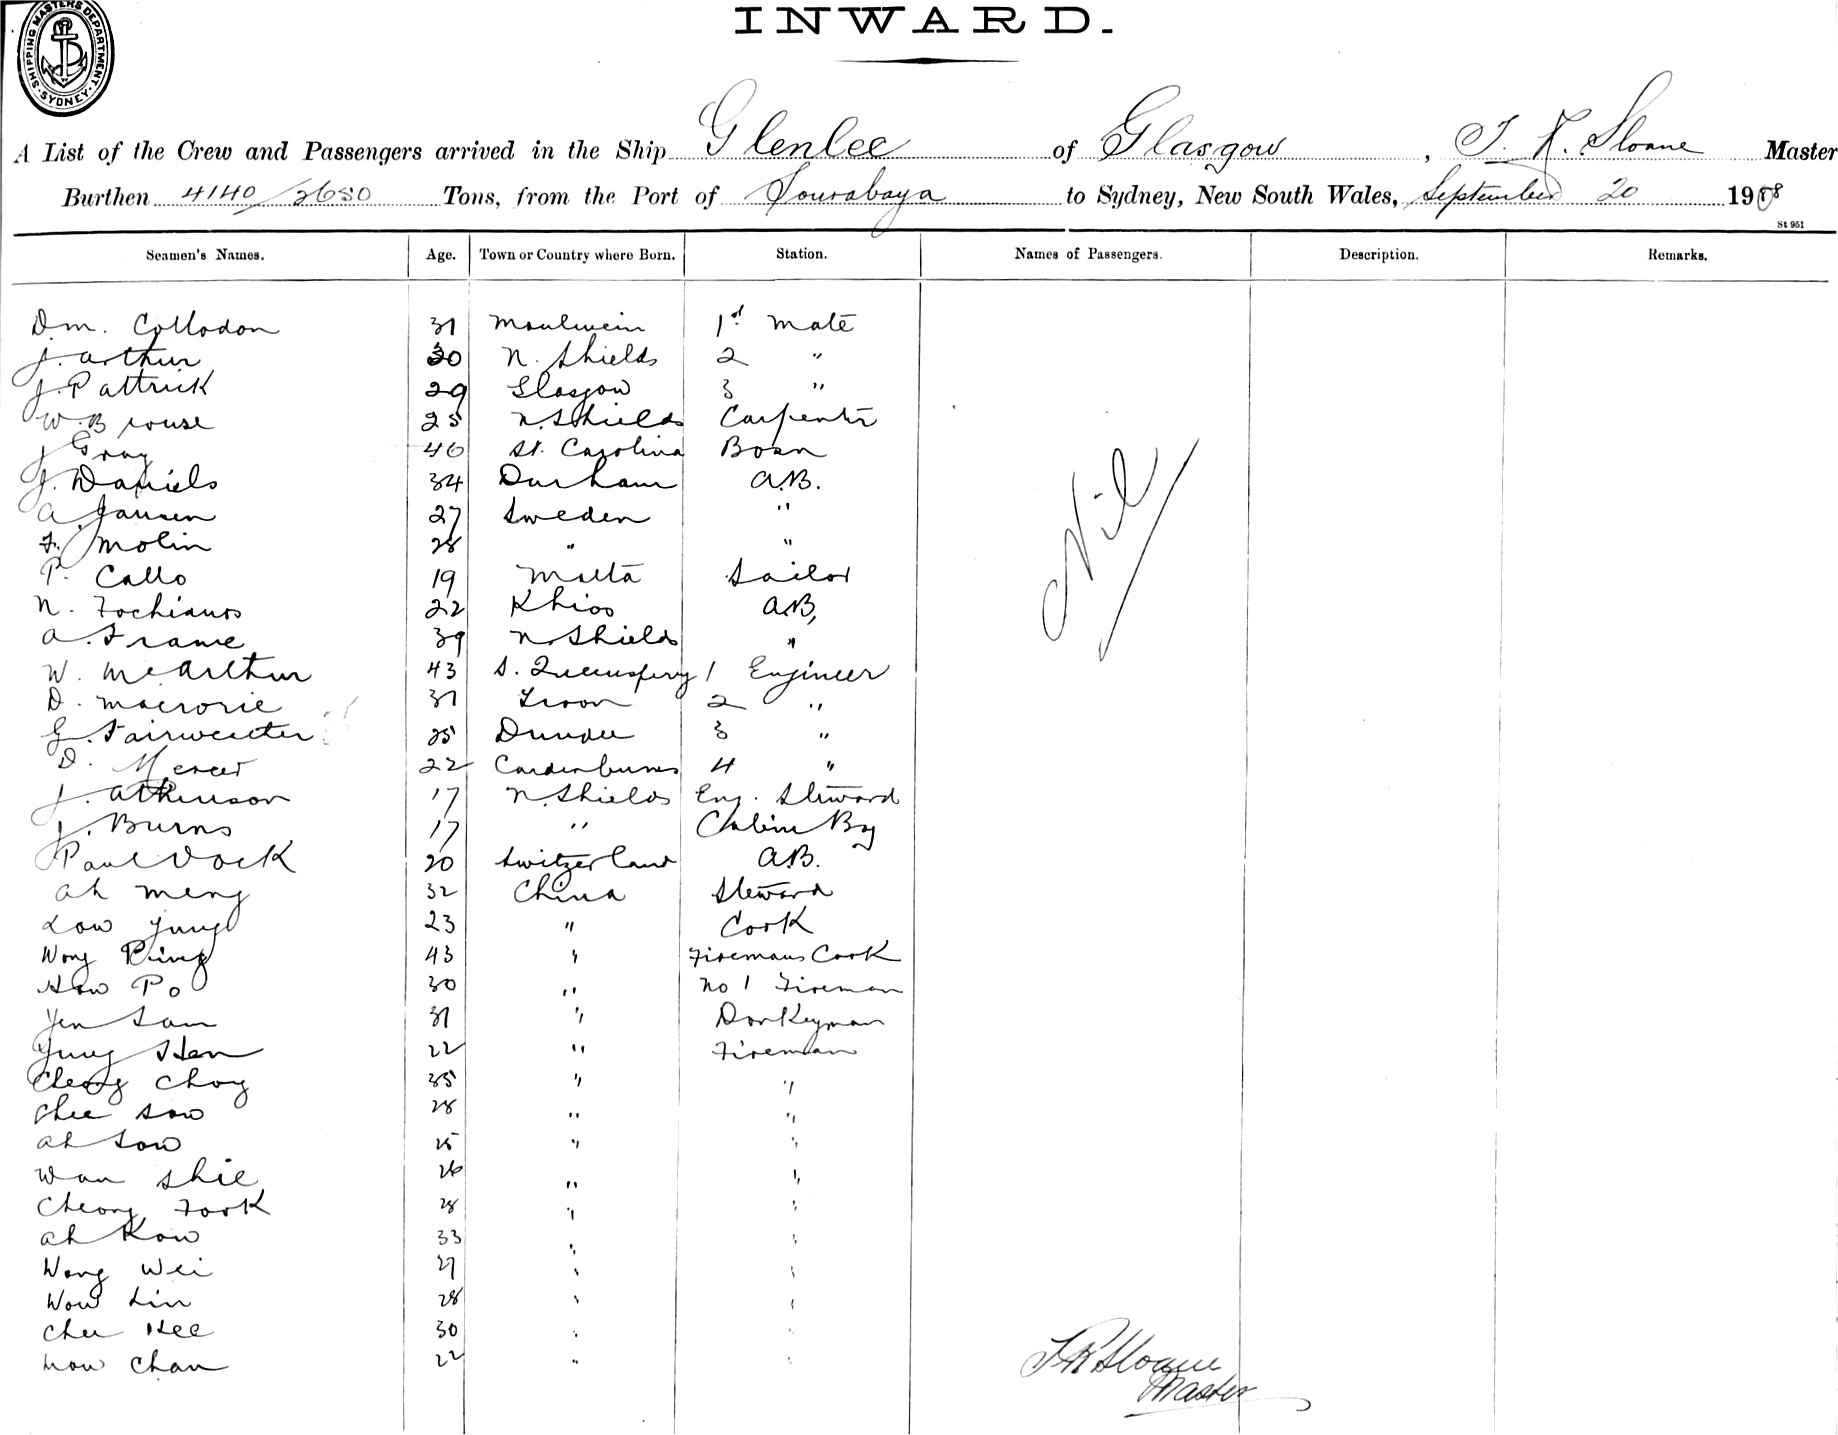 SHIPPING MASTERS DEPARTMENT. SYDNEY.
INWARD.
A List of the Crew and Passengers arrived in the Ship Glenlee of Glasgow, T. R. Sloane Master
Burthen 4140/2650 Tons, from the Port of Sourabaya to Sydney, New South Wales, September 20 1908
St 951
Seamen's Names. Age. Town or Country where Born. Station. Names of Passengers. Description. Remarks.
D.M. Collodon 31 Moulmein 1st Mate
J. Arthur 30 N. Shields 2 "
J. Pattrick 29 Glasgow 3 "
W. Brouse 25 N. Shields Carpenter
J Gray 40 St. Carolina Bosn
J. Daniels 34 Durham A.B.
A. Jansen 27 Sweden "
F. Molin 28 " "
P. Callo 19 Malta Sailor
N. Fochianos 22 Khios A.B,
A. Frame 39 N. Shields "
W. McArthur 43 S. Queensferry 1 Engineer
D. Macrorie 31 Troon 2 "
G. Fairweather 25 Dundee 3 "
D. Mercer 22 4 "
J. Atkinson 17 N. Shields Eng. Steward
J. Burns 17 " Cabin Boy
Paul Vock 20 Switzerland A.B.
Ah Meng 32 China Steward
Low Yung 23 " Cook
Wong Ping 43 " Firemans Cook
How Po 30 " No 1 Fireman
Yen Sam 31 " Donkeyman
Yung Hen 22 " Fireman
Cheong Choy 35 " "
Chee Sow 28 " "
Ah Sow 25 " "
Wan Shie 26 " "
Cheong Fook 28 " "
Ah Kow 33 " "
Wong Wei 27 " "
Wow Lin 28 " "
Chu Hee 30 " "
Mow Chan 22 " "
Nil
T R Sloane
Master